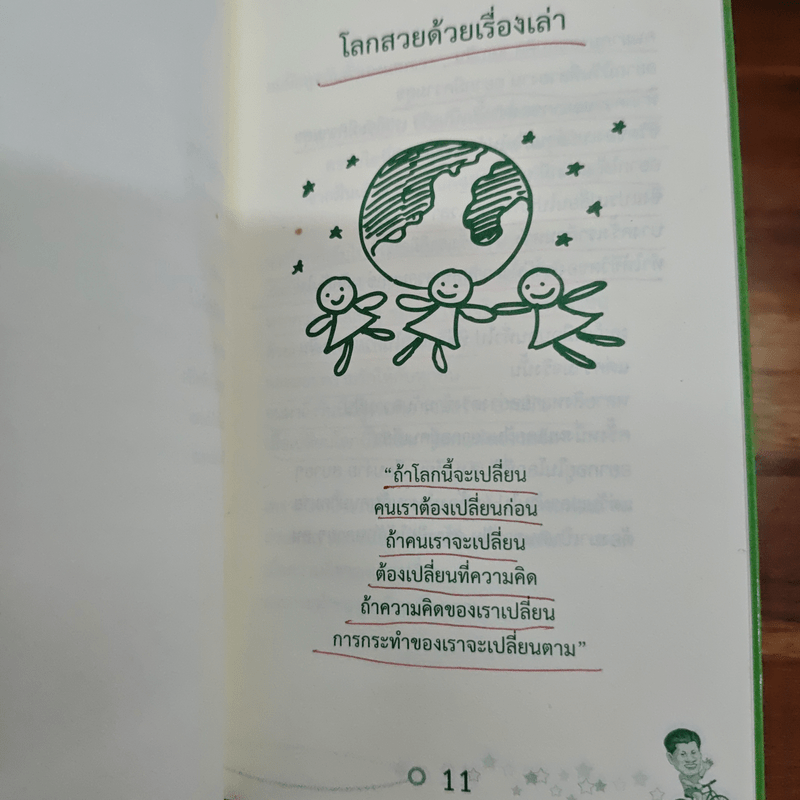 โลกสวยด้วยเรื่องเล่า
“ถ้าโลกนี้จะเปลี่ยน
คนเราต้องเปลี่ยนก่อน
ถ้าคนเราจะเปลี่ยน
ต้องเปลี่ยนที่ความคิด
ถ้าความคิดของเราเปลี่ยน
การกระทำของเราจะเปลี่ยนตาม”
11